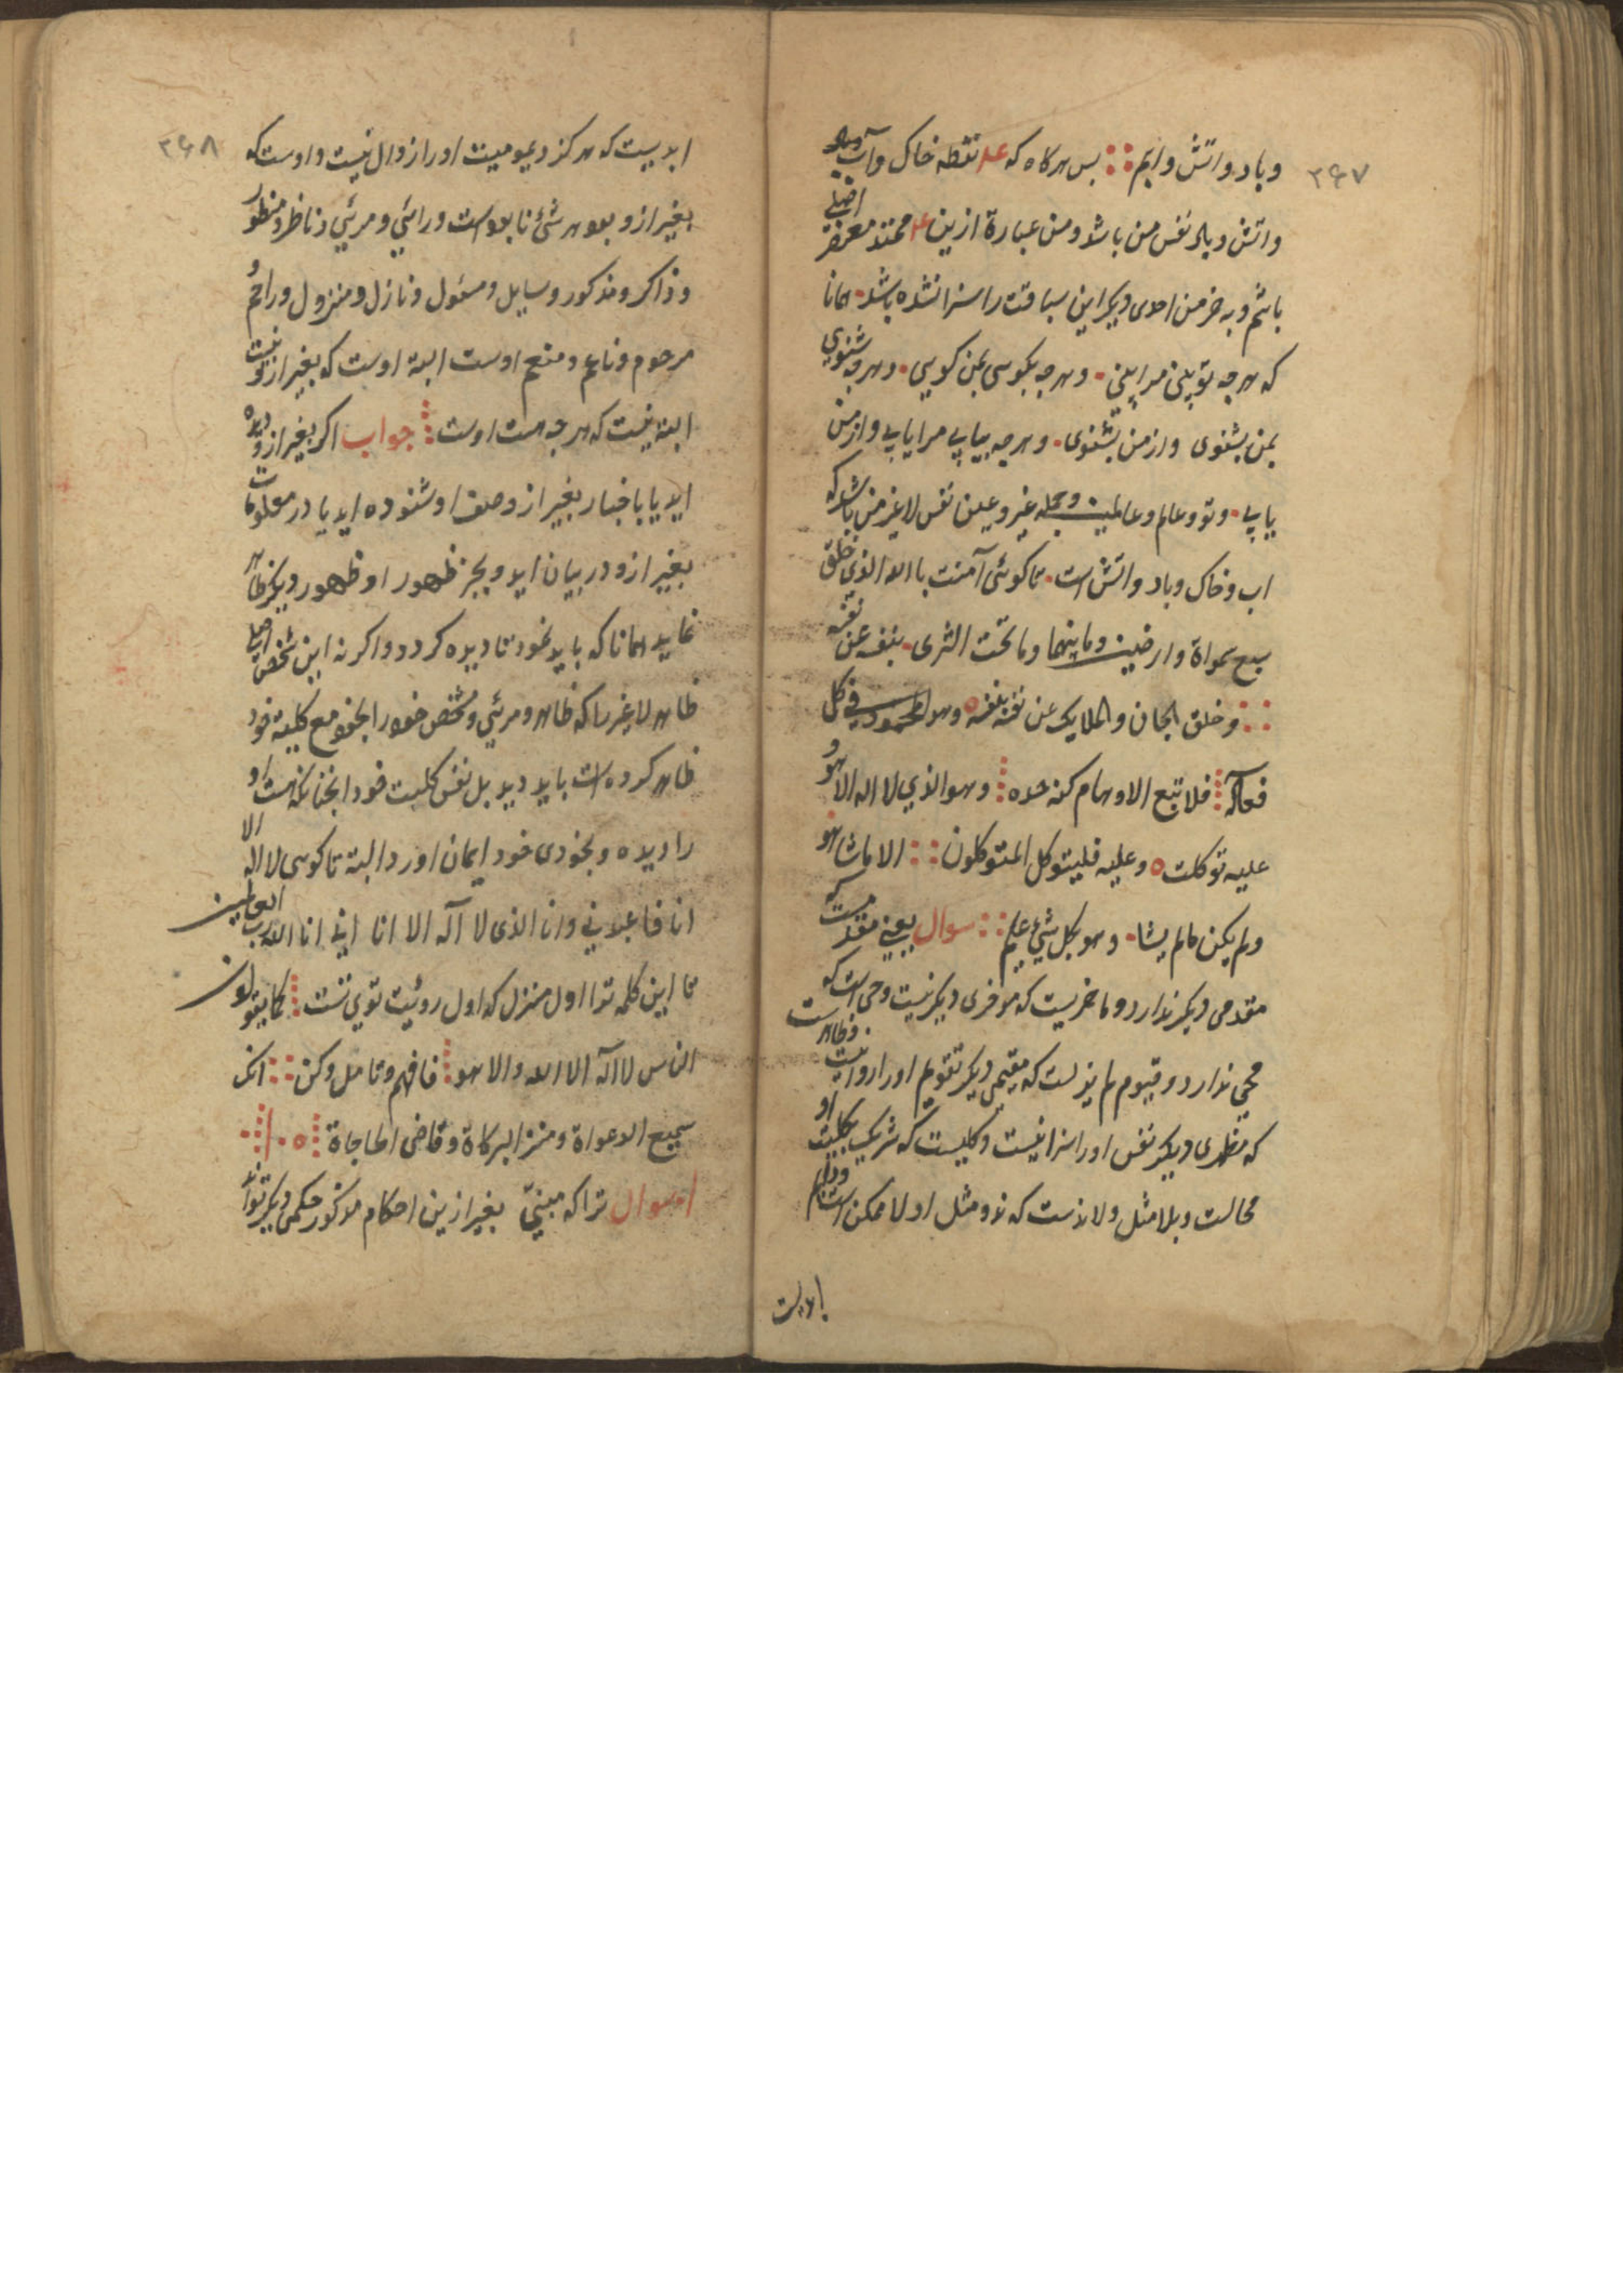 ۲۶۷
و باد و اتش و ابم بس هرکاه که علم نقطه خاک و آب و باد
و اتش و بلا نفس من باشد و من عبارة ازین محمد معرفة اصلی
باشم و به خر من احدی دیکر این سباقت را سزا نشده باشد همانا
که هرجه تو بینی مرا بینی و هرجه بکوسی بمن کویی و هرجه شنوی
بمن بشنوی و از من بشنوی و هرجه بیابی مرا یابی و از من
یابی و تو و عالم و عالمیت و جمله غیر و عین نفس لاغیر من باشد که
اب و خاک و باد و اتش است تا کوئی آمنت باالله الذی خلق
سبع سمواة و ارضین و ما بینهما و ما تحت الثری بنفسه عن نفسه
و خلق الجان و الملایک عن نفسه بنفسه و هو المحمود فی کل
فعاله فلا تتبع الاوهام کنه حده و هو الذی لا اله الا هو
علیه توکلت و علیه فلیتوکل المتوکلون الا ماشا هو
و لم یکن مالم یشا و هو بکل شئ علیم سوال یعنی مقدمست که
مقدمی دیکر ندارد و ماخریست که موخری دیکر نیست و حی است که
محیی ندارد و قیوم لم یزلست که مقیمی دیکر تقویم اورا روا نیست و ظاهرست
که مظهری دیکر نفس اورا سزا نیست و کلیست که شریک بکلیت او
محالست و بلا مثل و لاندست که ند و مثل او لا ممکن است و دایم
ابدیست
۲۶۸
ابدیست که هرکز دیمومیت اورا زوال نیست و اوست که
بغیر ازو بود هر شئ نا بود است و رائی و مرئی و ناظر و منظور
و ذاکر و مذکور و سایل و مسئول و نازل و منزول و راحم و
مرحوم و ناعم و منعم اوست البتة اوست که بغیر ازو نیست
البته نیست که هرجه هست اوست جواب اکر بغیر ازو دیده
اید یا باخبار بغیر از وصف او شنوده اید یا در معلومات
بغیر ازو در بیان اید و بجز ظهور او ظهور دیکر ظاهر
نماید همانا که باید نمود تا دیده کردد و اکر نه این شخص اصلی
ظاهر لاغیر را که ظاهر و مرئی و مشخص خود را بخود مع کلیة خود
ظاهر کرده است باید دید بل نفس کلیت خود انجنانکه هست او
را دیده و بخودی خود ایمان اورد البتة تا کوسی لا اله الا
انا فاعبدونی و انا الذی لا آله الا انا انی انا الله رب العالمین
تا این کلمه ترا اول منزل که اول روئیت توی تست کما یقولون
الناس لا اله الا الله والا هو فافهم و تامل و کن انک
سمیع الدعواة و منزل البرکاة و قاضی الحاجاة
سوال ترا که مبنی بغیر ازین احکام مذکور حکمی دیکر تواند